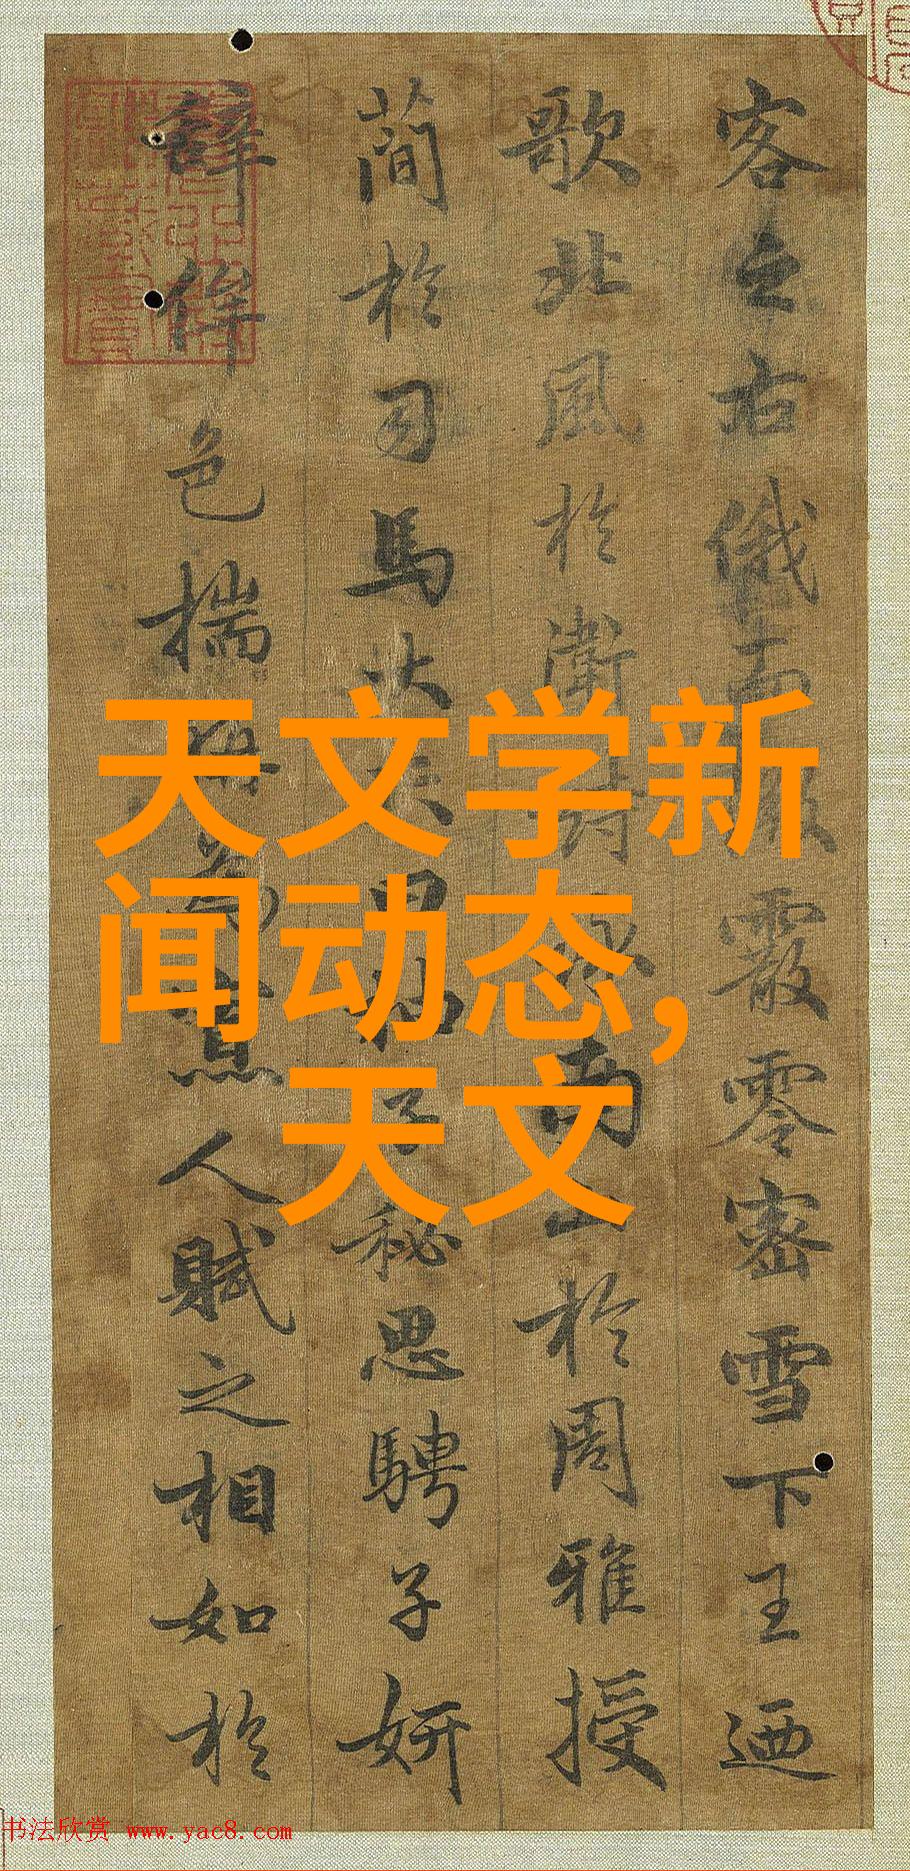 天文学新
闻动态,
天文
客之右俄而霰零密雪下王迺
歌北風於衛南於周雅授
蕳於司馬大子秘思騁子妍
辭侔色揣為人賦之相如於
书法欣赏 www.yac8.com